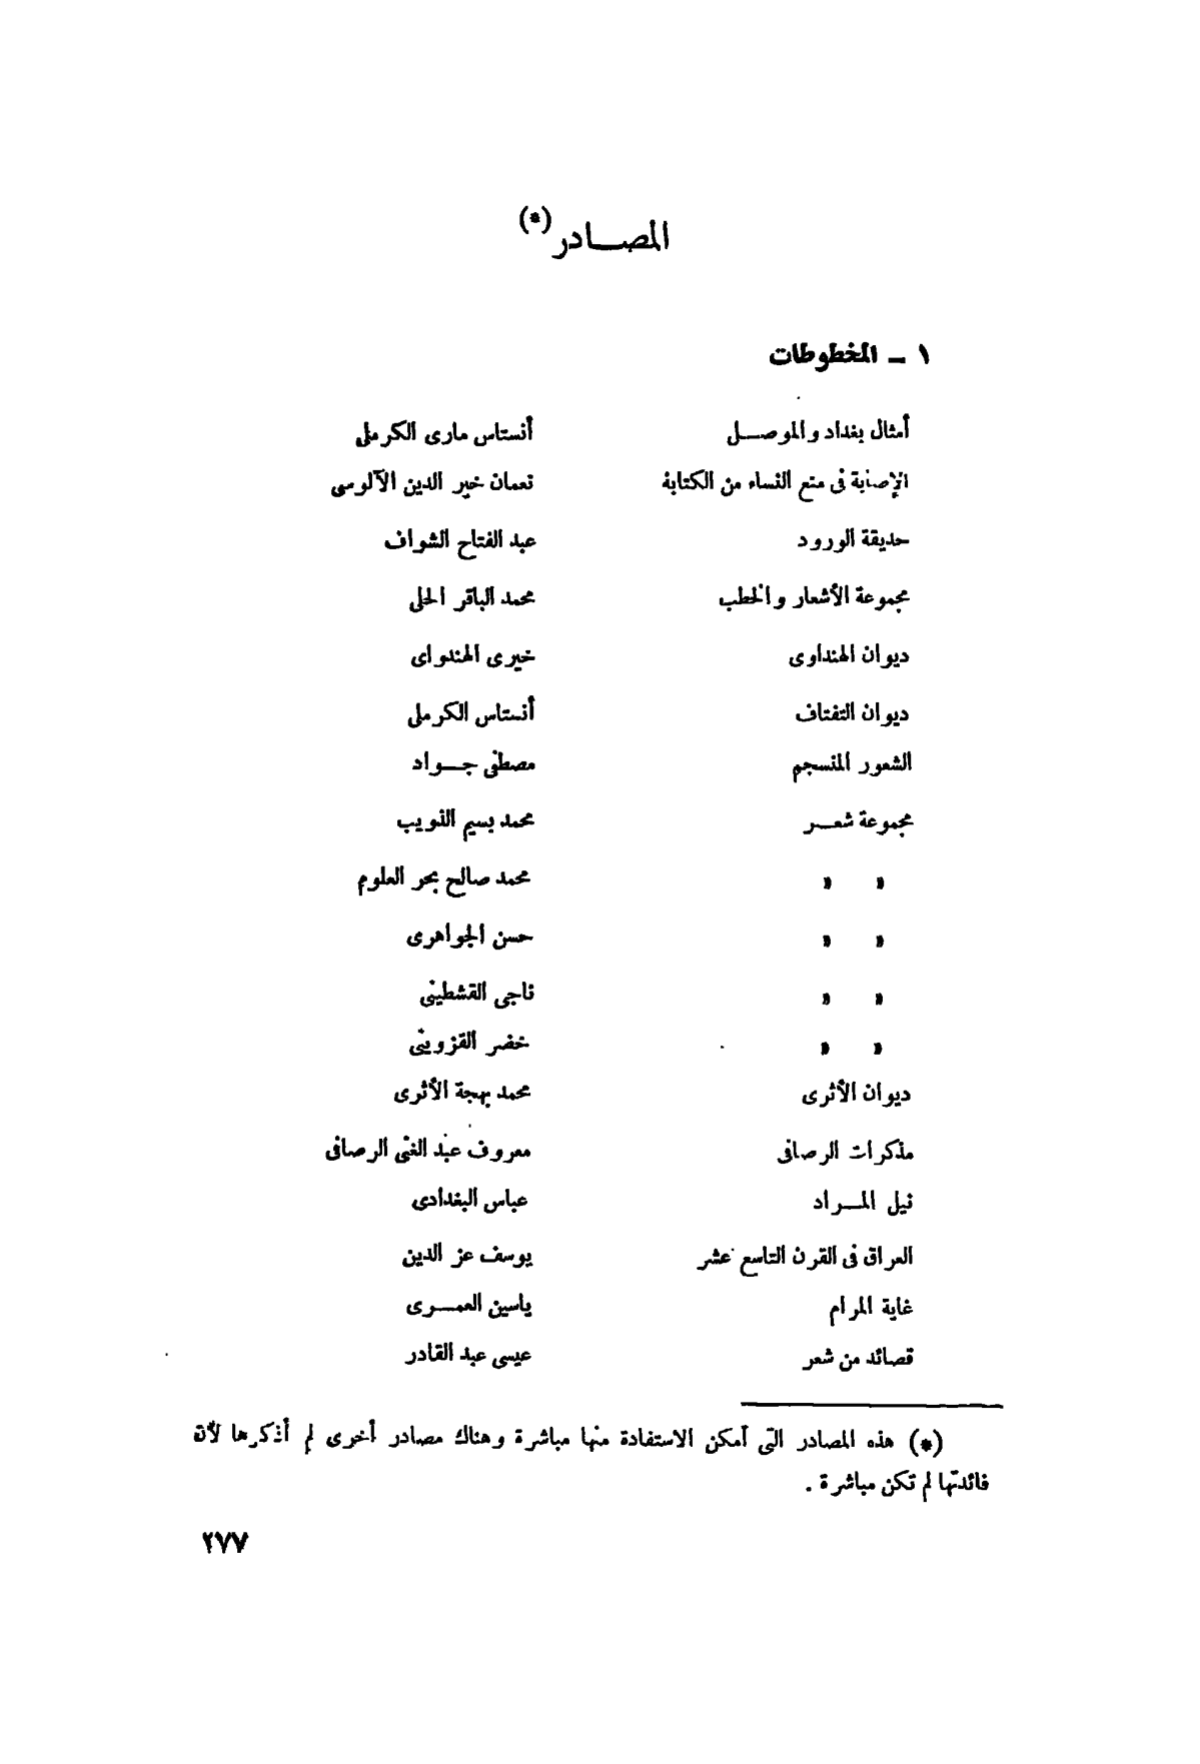 المصادر (*)
١ - المخطوطات
أمثال بغداد والموصل أنستاس مارى الكرملى
الإصابة فى منع النساء من الكتابة نعمان خير الدين الآلوسى
حديقة الورود عبد الفتاح الشواف
مجموعة الأشعار والخطب محمد الباقر الحلى
ديوان الهنداوى خيرى الهندواى
ديوان التفتاف أنستاس الكرملى
الشعور المنسجم مصطفى جواد
مجموعة شعر محمد بسيم الذويب
» » محمد صالح بحر العلوم
» » حسن الجواهرى
» » ناجى القشطينى
» » خضر القزوينى
ديوان الأثرى محمد بهجة الأثرى
مذكرات الرصافى معروف عبد الغنى الرصافى
نيل المراد عباس البغدادى
العراق فى القرن التاسع عشر يوسف عز الدين
غاية المرام ياسين العمرى
قصائد من شعر عيسى عبد القادر
(*) هذه المصادر التى أمكن الاستفادة منها مباشرة وهناك مصادر أخرى لم أذكرها لأن
فائدتها لم تكن مباشرة .
٢٧٧